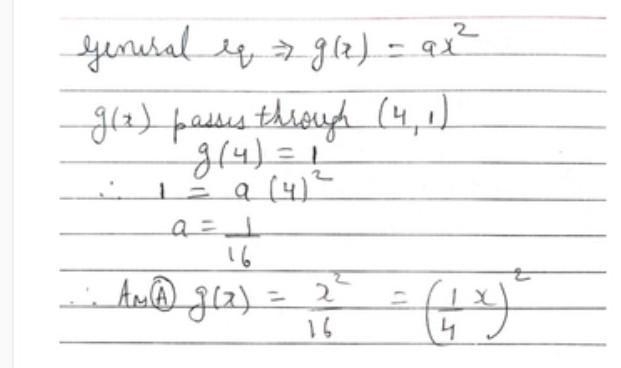 general eq ⇒ g(x) = ax²
g(x) passes through (4,1)
g(4) = 1
∴ 1 = a (4)²
a = 1/16
∴ Ans Ⓐ g(x) = x²/16 = (1/4 x)²